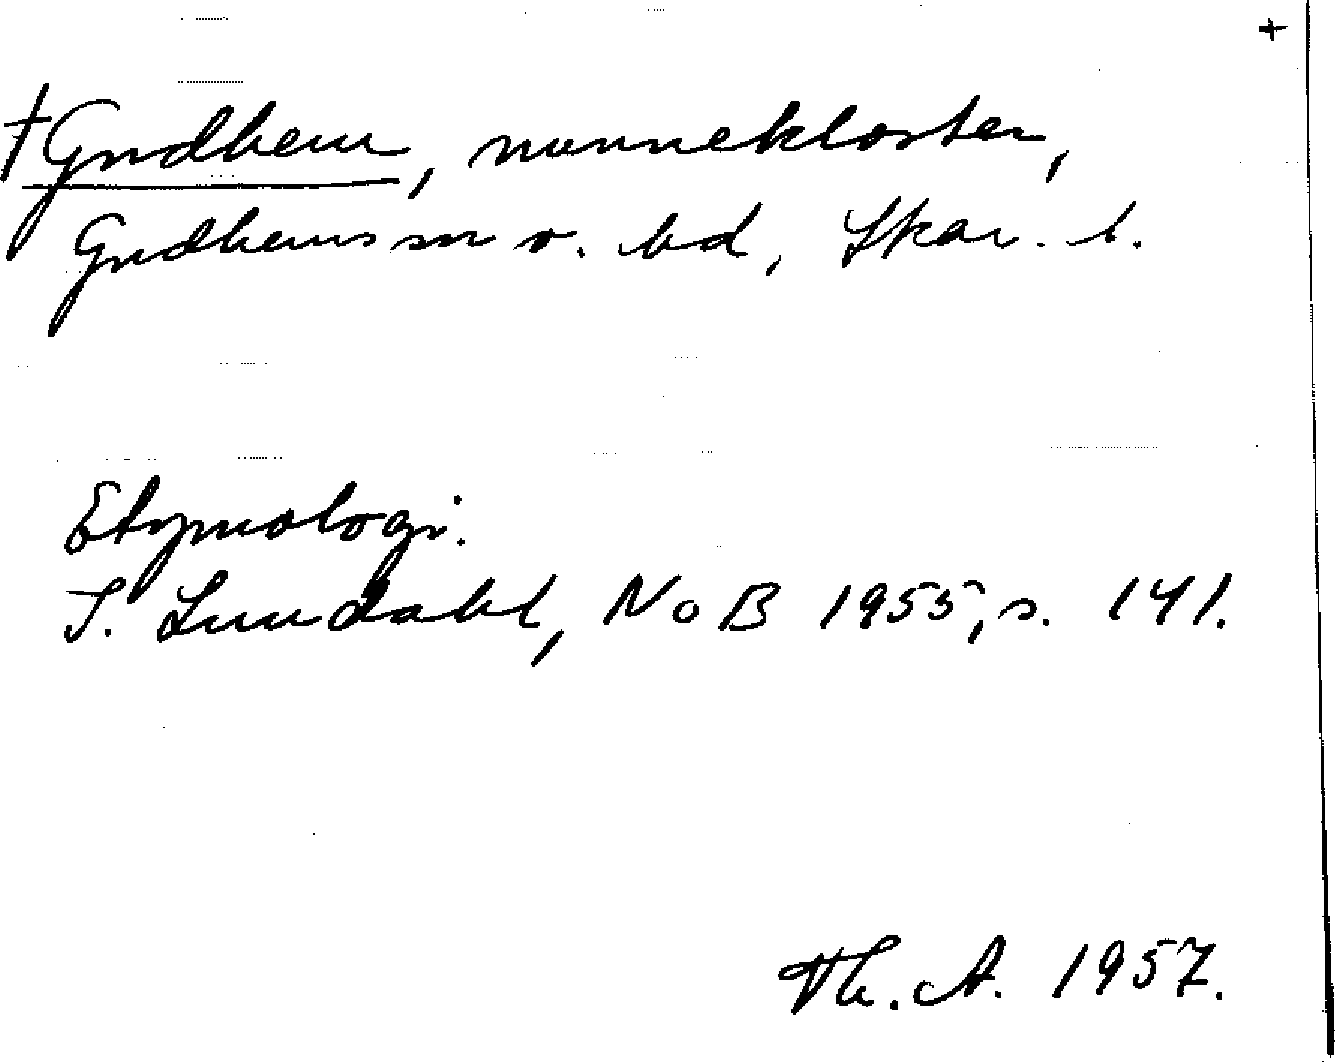 +
†Gudhem, nunnekloster,
Gudhems sn o. hd, Skar. l.
Etymologi.
I. Lundahl, NoB 1955, s. 141.
Th. A. 1957.